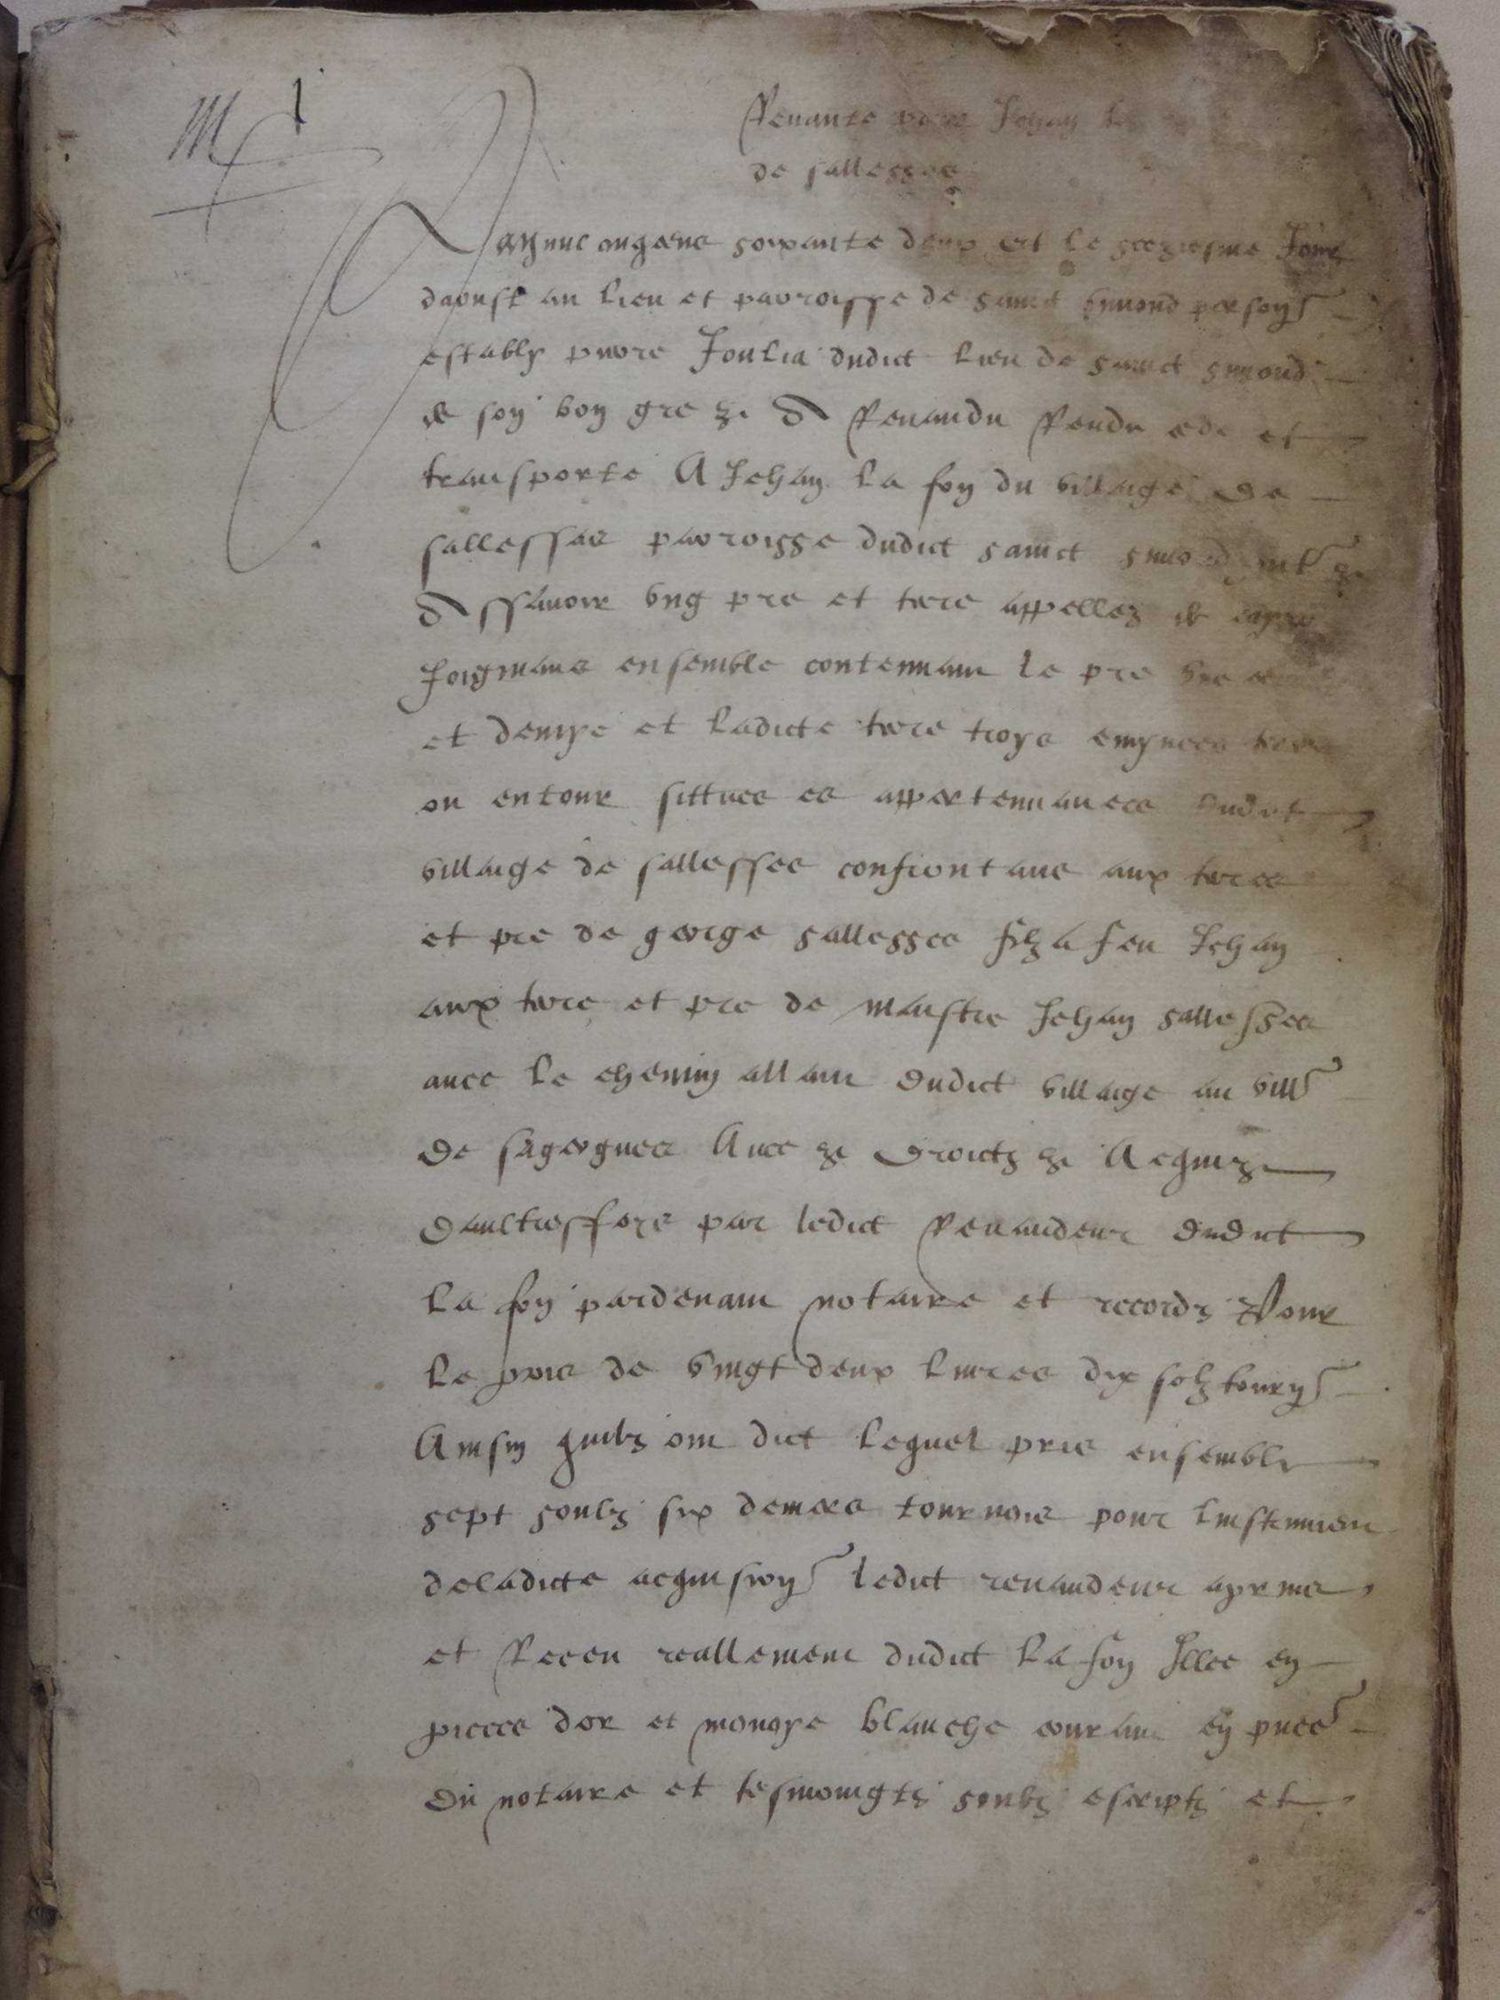 M 1
Revante pour Jehan
de sallesses
Lan mil cinq cens soixante deux et le seziesme jour
daoust au lieu et parroisse de sainct symond person~
estably pierre Joulia dudict lieu de sainct symond
de son bon gre &c a Revandu Randu cede et
transporte A Jehan la fon du villaige de
sallesses parroisse dudict sainct symond
assavoir ung pre et terre appellez
Joignans ensemble contennant le pre
et demye et ladicte terre troys emynees
ou entour sittuees es appertennances dudict
villaige de sallesses confrontans aux terres
et pre de george sallesses filz a feu Jehan
aux terre et pre de maistre Jehan sallesses
avec le chemin allant dudict villaige au vill~
de sageognes Avec &c droictz &c Acquiz
daultresfoys par ledict Revandeur dudict
la fon pardevant notaire et recordz Pour
le pris de vingt deux livres dix solz tourn~
Ainsin quilz ont dict lequel pris ensemble
sept soulz six deniers tournois pour linstrument
deladicte acquision~ ledict revandeur a prins
et Receu reallement dudict la fon Illec en
pieces dor et monoye blanche courant en pnce~
du notaire et tesmoingtz soubz escriptz et